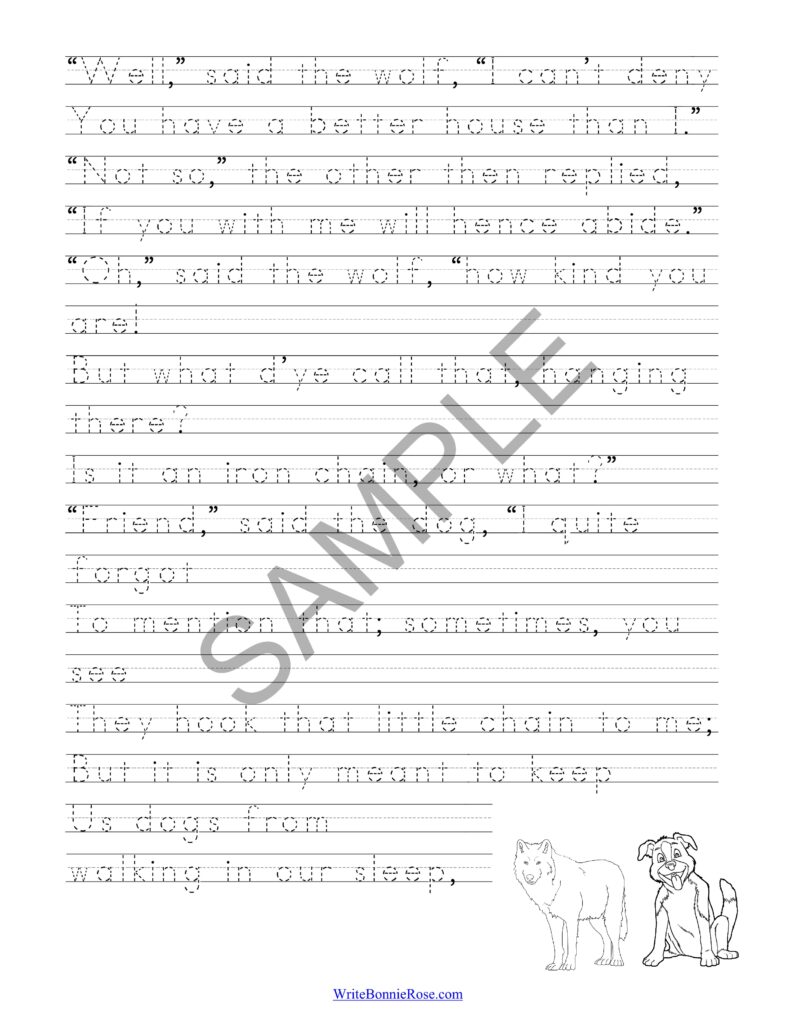 “Well,” said the wolf, “I can’t deny
You have a better house than I.”
“Not so,” the other then replied,
“If you with me will hence abide.”
“Oh,” said the wolf, “how kind you
are!
But what d’ye call that, hanging
there?
Is it an iron chain, or what?”
“Friend,” said the dog, “I quite
forgot
To mention that; sometimes, you
see
They hook that little chain to me;
But it is only meant to keep
Us dogs from
walking in our sleep,
SAMPLE
WriteBonnieRose.com